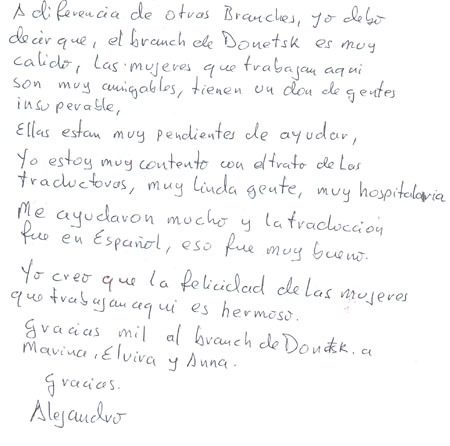 A diferencia de otras Branches, yo debo
decir que, el branch de Donetsk es muy
calido, Las mujeres que trabajan aqui
son muy amigables, tienen un don de gentes
insuperable,
Ellas estan muy pendientes de ayudar,
Yo estoy muy contento con el trato de Las
traductoras, muy Linda gente, muy hospitalaria
Me ayudaron mucho y la traduccion
fue en Español, eso fue muy bueno.
Yo creo que la felicidad de las mujeres
que trabajan aqui es hermoso.
Gracias mil al branch de Donetsk. a
Marina, Elvira y Anna.
Gracias.
Alejandro